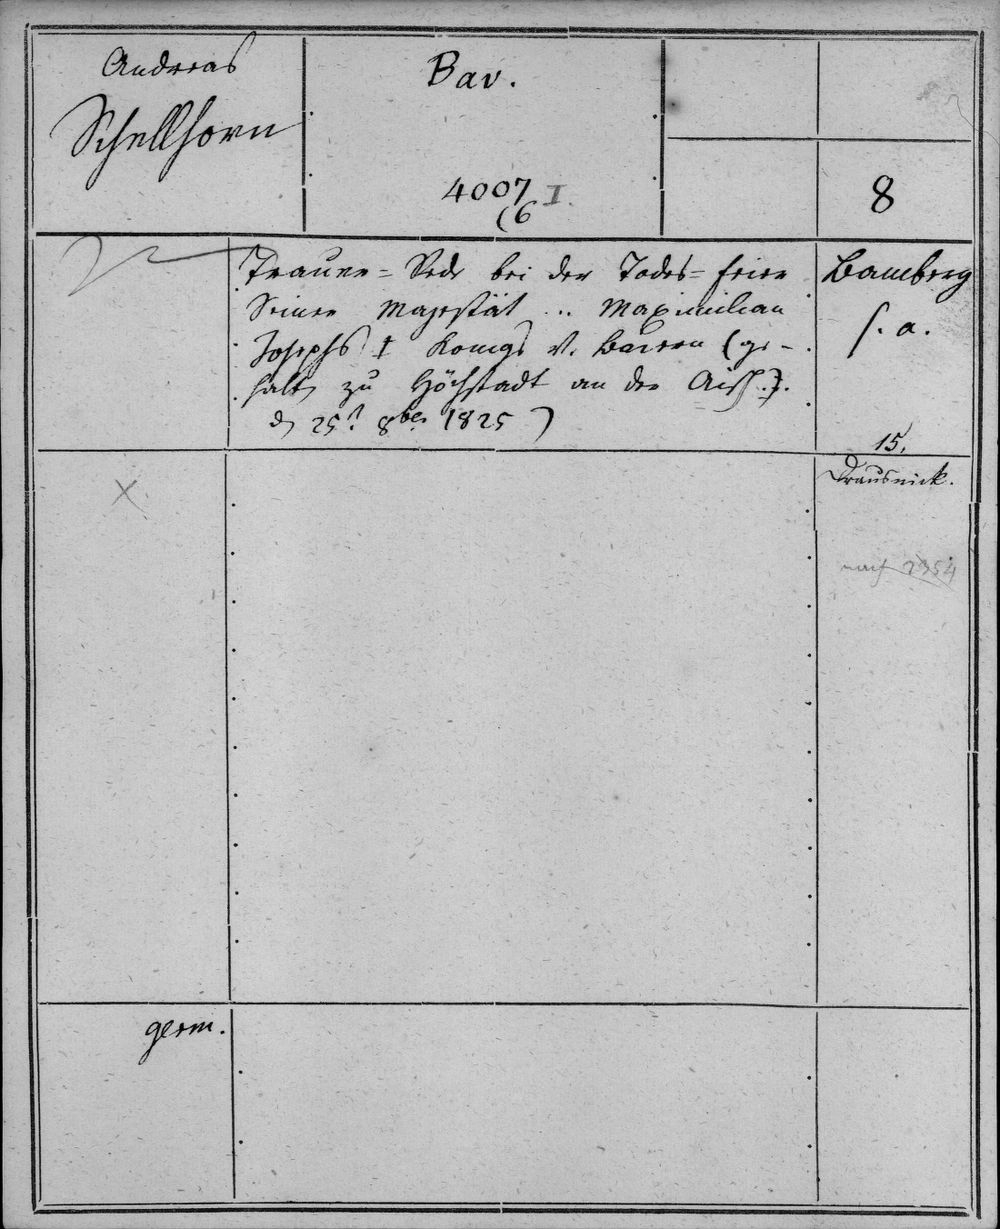 Andreas
Schellhorn
Bav.
4007 I.
(6
8
Trauer=Rede bei der Todes=feier
Seiner Majestät .. Maximilian
Josephs I Königs v. Baiern (ge-
halt. zu Höchstadt an der Aisch.
d. 25t. 8ber 1825)
Bamberg
s. a.
15.
Drausnick.
nach 2354
germ.